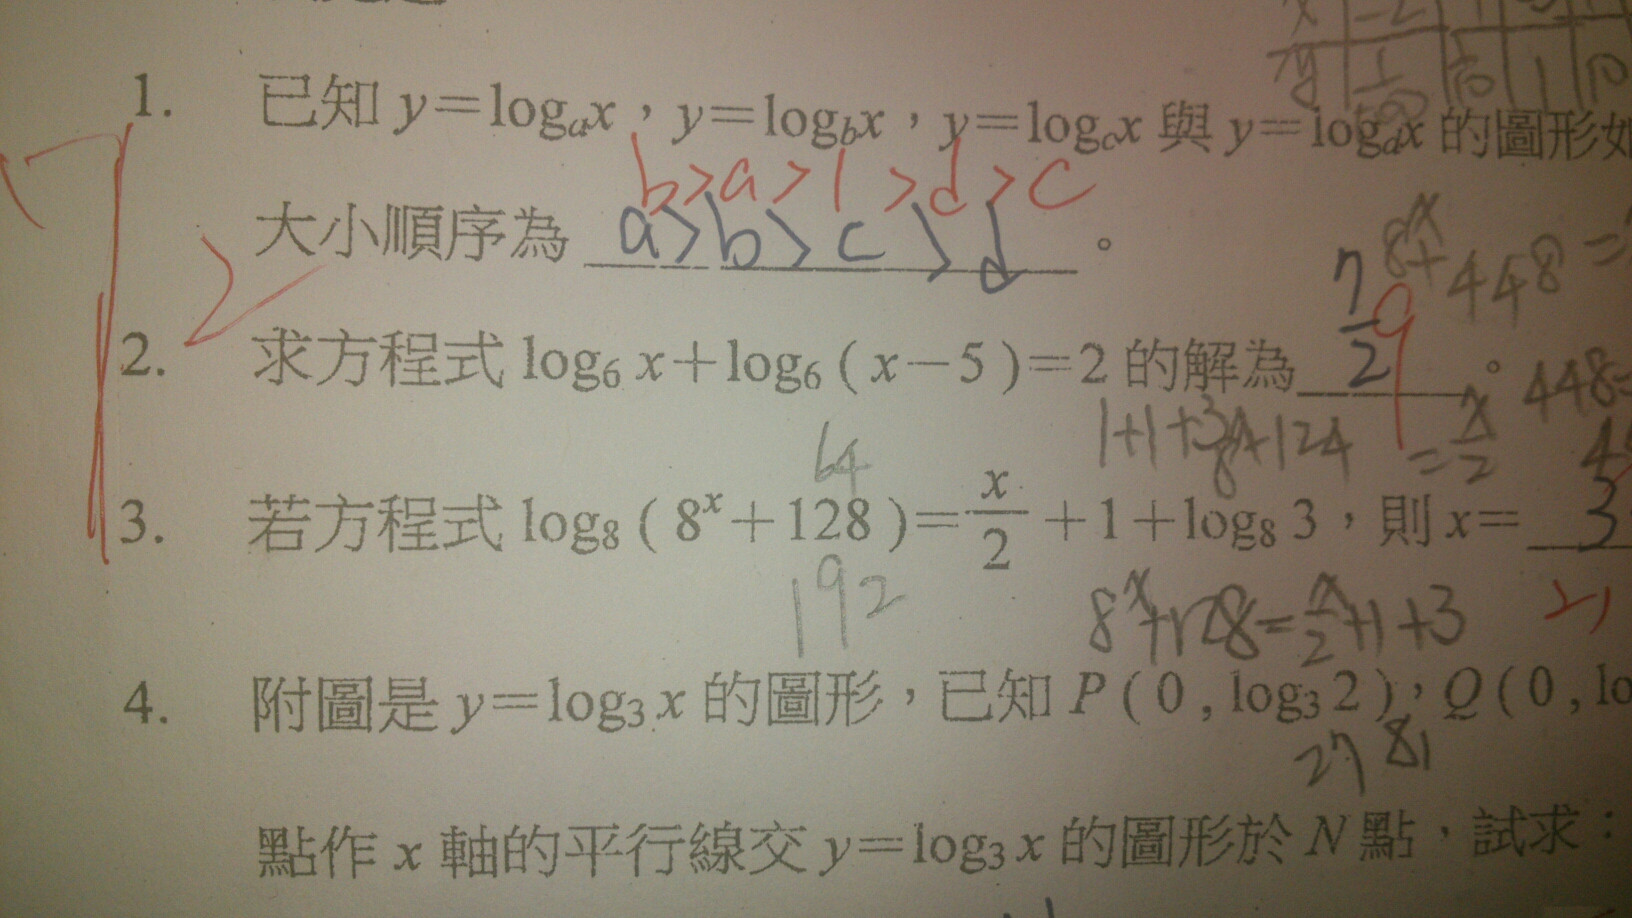 x -2 1
y 1/100 1/10 1 10
1. 已知 y=logₐx,y=log_bx,y=log_cx 與 y=log_dx 的圖形如
b>a>1>d>c
大小順序為 a>b>c>d 。
8ˣ+448=
2. 求方程式 log₆ x+log₆ ( x-5 )=2 的解為 7/2 9 。
448=
1+1+3
=x/2
64
3. 若方程式 log₈ ( 8ˣ+128 )=x/2+1+log₈ 3,則 x= 3
192
8ˣ+128=x/2+1+3
4. 附圖是 y=log₃ x 的圖形,已知 P ( 0 , log₃ 2 ),Q ( 0 , lo
27 81
點作 x 軸的平行線交 y=log₃ x 的圖形於 N 點,試求: